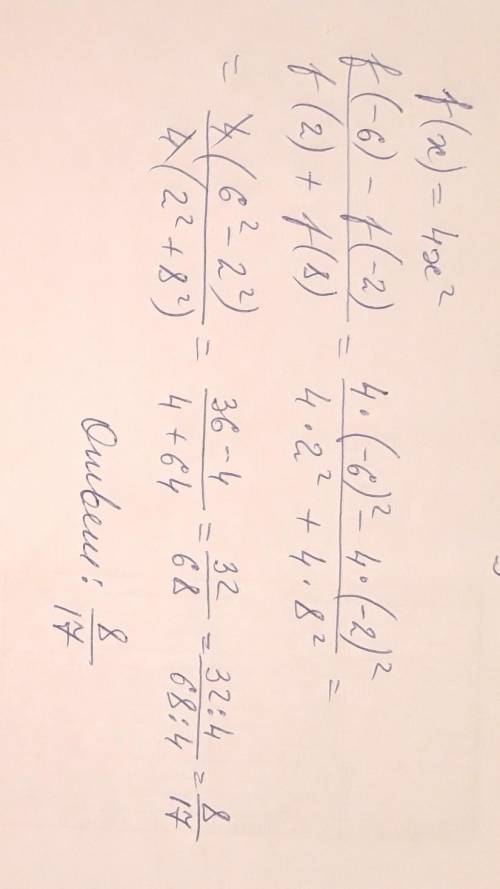 f(x) = 4x²
(f(-6) - f(-2))/(f(2) + f(8)) = (4·(-6)² - 4·(-2)²)/(4·2² + 4·8²) =
= (4(6² - 2²))/(4(2² + 8²)) = (36 - 4)/(4 + 64) = 32/68 = (32:4)/(68:4) = 8/17
Ответ: 8/17